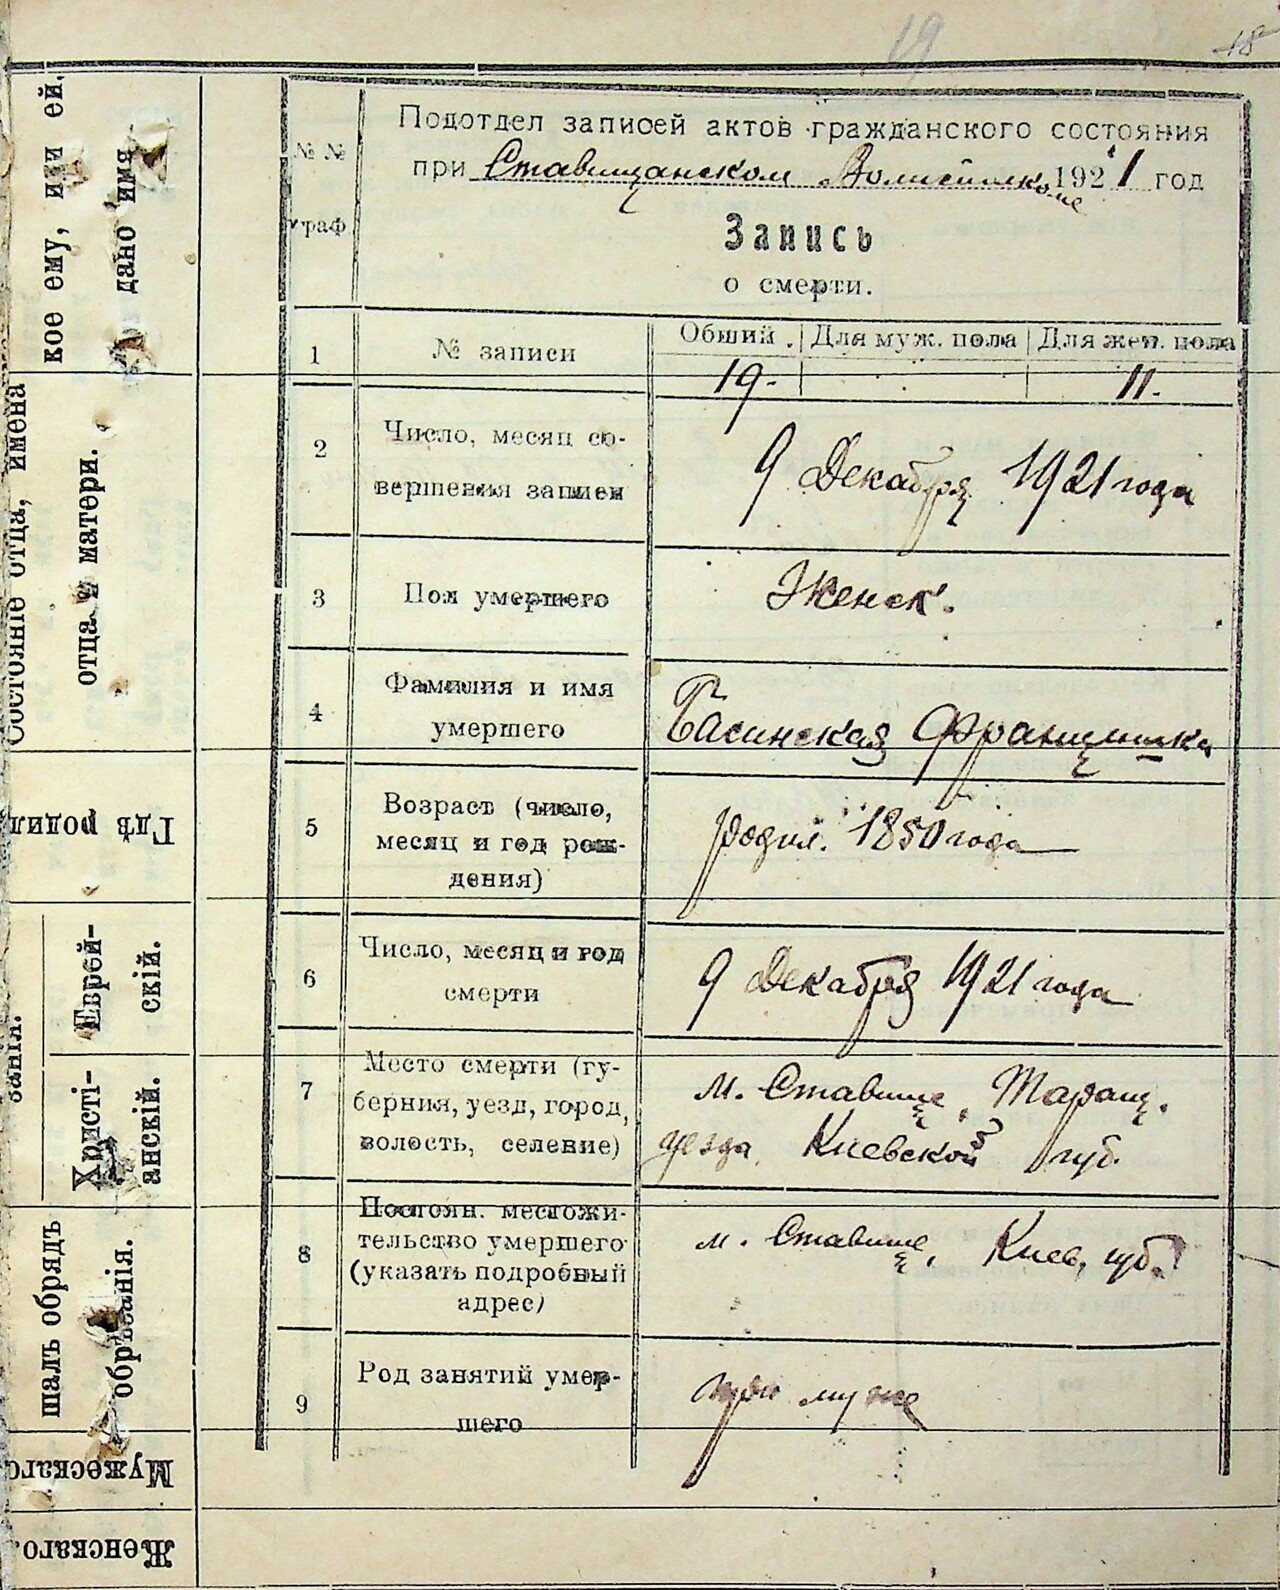 19
18
кое ему, или ей.
дано имя
Состояніе отца, имена
отца и матери.
Гдѣ родил
ванія.
Еврей-
скій.
Христі-
анскій.
шалъ обрядъ
обрѣзанія.
Мужескаго
Женскаго.
№ №
граф
Подотдел записей актов гражданского состояния
при Ставищанском Волисполкоме 1921 год
Запись
о смерти.
1
№ записи
Общий. Для муж. пола Для жен. пола
19. 11.
2
Число, месяц со-
вершения записи
9 Декабря 1921 года
3
Пол умершего
Женск.
4
Фамилия и имя
умершего
Басинская Францишка
5
Возраст (число,
месяц и год рож-
дения)
родил. 1850 года
6
Число, месяц и год
смерти
9 Декабря 1921 года
7
Место смерти (гу-
берния, уезд, город,
волость, селение)
м. Ставище, Таращ.
уезда Киевской губ.
8
Постоян. местожи-
тельство умершего
(указать подробный
адрес)
м. Ставище, Киев. губ.
9
Род занятий умер-
шего
при муже